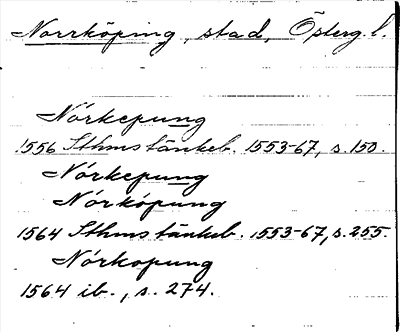 Norrköping, stad, Österg.l.
Nórkepung
1556 Sthms tänkeb. 1553-67, s. 150.
Nórkepung
Nórkópung
1564 Sthms tänkeb. 1553-67, s. 255.
Nórkopung
1564 ib., s. 274.